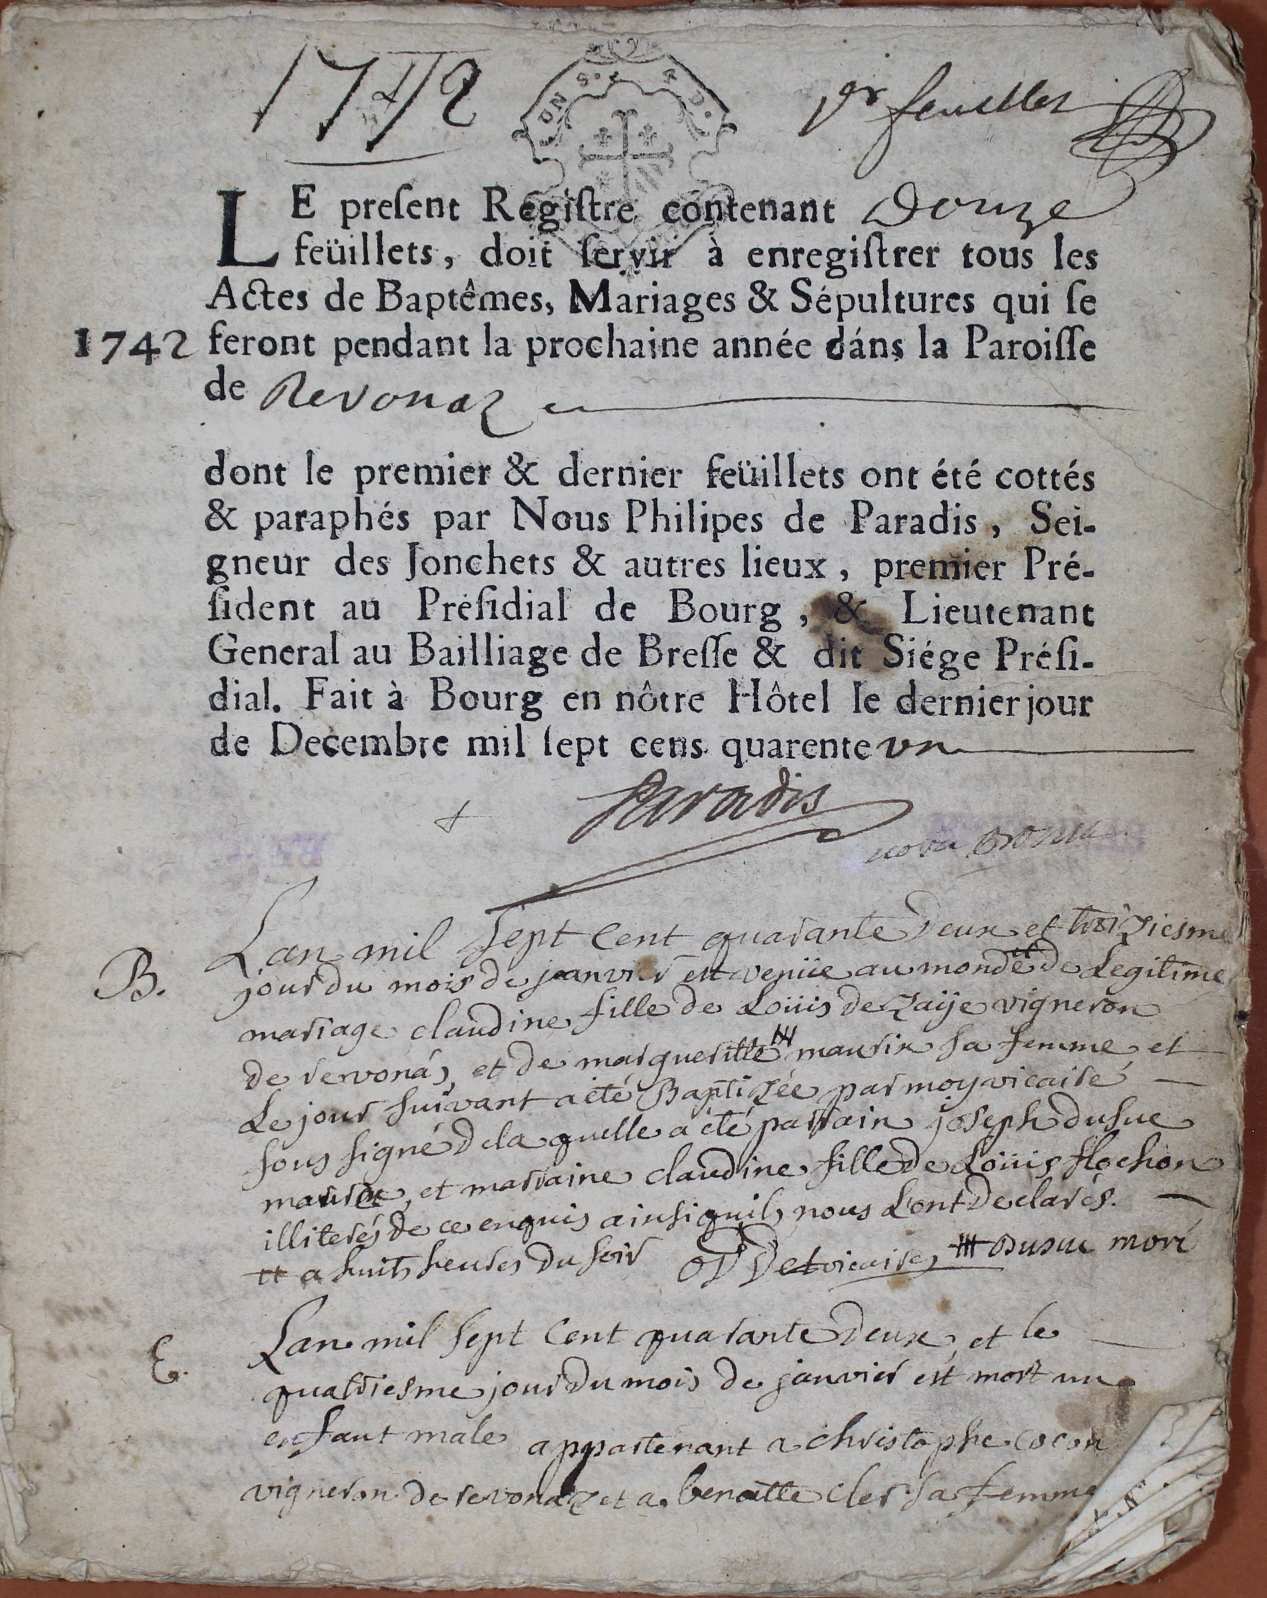 1742
per feuillet
LE preſent Regiſtre contenant Douze
feüillets, doit ſervir à enregiſtrer tous les
Actes de Baptêmes, Mariages & Sépultures qui ſe
1742 feront pendant la prochaine année dáns la Paroiſſe
de Revonaz
dont le premier & dernier feüillets ont été cottés
& paraphés par Nous Philipes de Paradis, Sei-
gneur des Jonchets & autres lieux, premier Pré-
ſident au Préſidial de Bourg, & Lieutenant
General au Bailliage de Breſſe & dit Siége Préſi-
dial. Fait à Bourg en nôtre Hôtel le dernier jour
de Decembre mil ſept cens quarente un
Paradis
Lan mil sept cent quarante deux et troiziesme
B. jour du mois de janvier est venüe au monde tt de Legitime
mariage claudine fille de Loüis de zaije vigneron
de revonas et de margueritte maurix sa femme et
Le jour suivant a eté Baptizée par moy vicaire
sous signé de la quelle a été parrain joseph dusuc
et marraine claudine fille de Loüis flochon
illiterés de ce enquis ainsi quils nous L'ont Declarés.
tt a huit heures du soir vicaire Dusuc
E. Lan mil sept cent quarante deux et le
quatriesme jour du mois de janvier est mort un
enfant male appartenant a christophe cocon
vigneron de revonaz et a benoitte cler sa femme